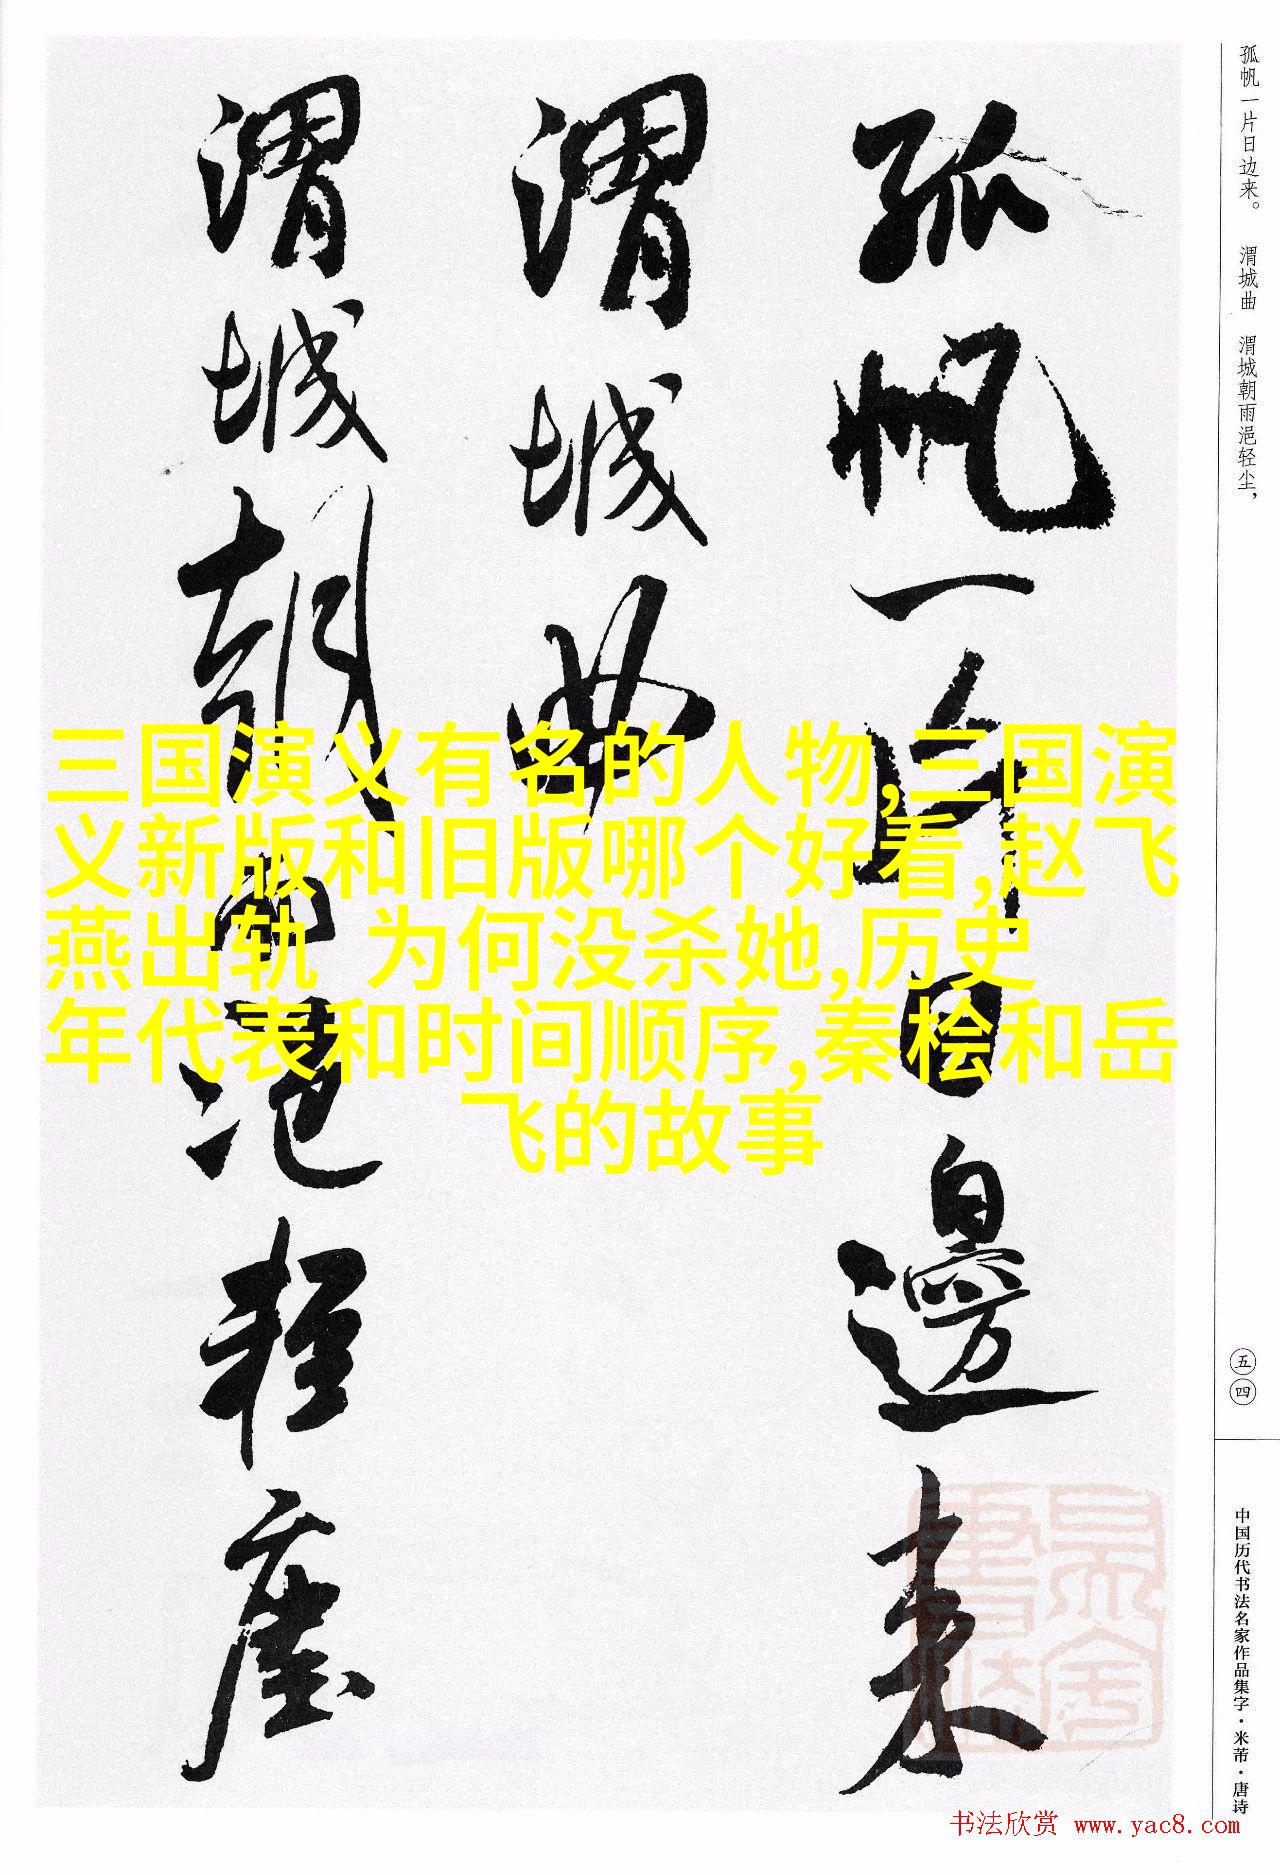 孤帆一片日边来。 渭城曲 渭城朝雨浥轻尘，
孤帆一片日邊来
渭城曲
渭城朝雨浥轻塵
三国演义有名的人物,三国演
义新版和旧版哪个好看,赵飞
燕出轨 为何没杀她,历史
年代表和时间顺序,秦桧和岳
飞的故事
五四
中国历代书法名家作品集字·米芾·唐诗
书法欣赏 www.yac8.com